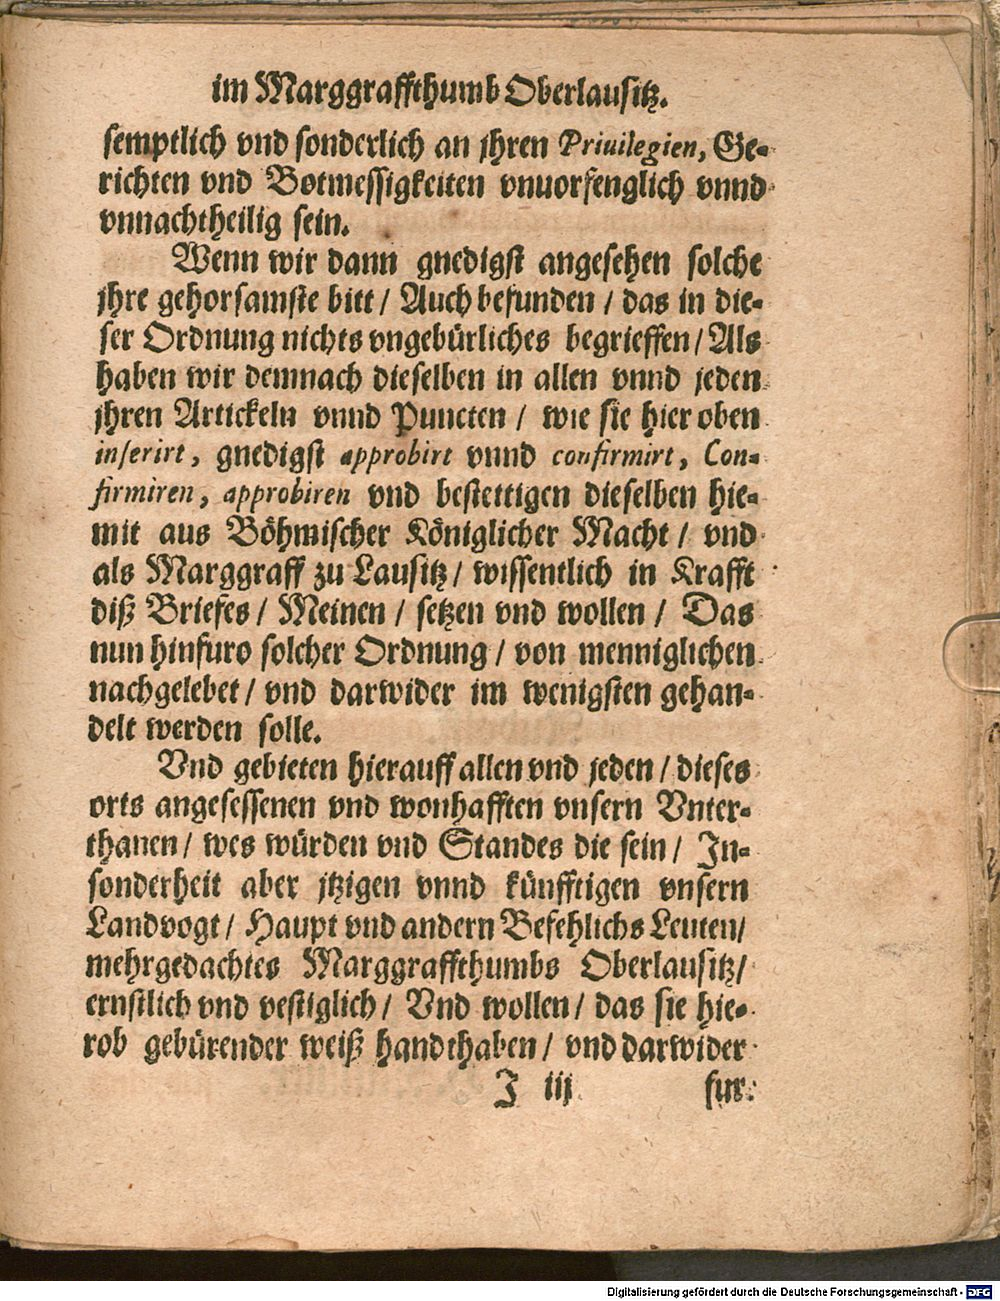 im Marggraffthumb Oberlausitz.
semptlich vnd sonderlich an jhren Priuilegien, Ge-
richten vnd Botmessigkeiten vnuorfenglich vnnd
vnnachtheilig sein.
Wenn wir dann gnedigst angesehen solche
jhre gehorsamste bitt / Auch befunden / das in die-
ser Ordnung nichts vngebürliches begrieffen / Als
haben wir demnach dieselben in allen vnnd jeden
jhren Artickeln vnnd Puncten / wie sie hier oben
inserirt, gnedigst approbirt vnnd confirmirt, Con-
firmiren, approbiren vnd bestettigen dieselben hie-
mit aus Böhmischer Königlicher Macht / vnd
als Marggraff zu Lausitz / wissentlich in Krafft
diß Briefes / Meinen / setzen vnd wollen / Das
nun hinfuro solcher Ordnung / von menniglichen
nachgelebet / vnd darwider im wenigsten gehan-
delt werden solle.
Vnd gebieten hierauff allen vnd jeden / dieses
orts angesessenen vnd wonhafften vnsern Vnter-
thanen / wes würden vnd Standes die sein / In-
sonderheit aber jtzigen vnnd künfftigen vnsern
Landvogt / Haupt vnd andern Befehlichs Leuten /
mehrgedachtes Marggraffthumbs Oberlausitz /
ernstlich vnd vestiglich / Vnd wollen / das sie hie-
rob gebürender weiß handthaben / vnd darwider
J iij fur
Digitalisierung gefördert durch die Deutsche Forschungsgemeinschaft - DFG